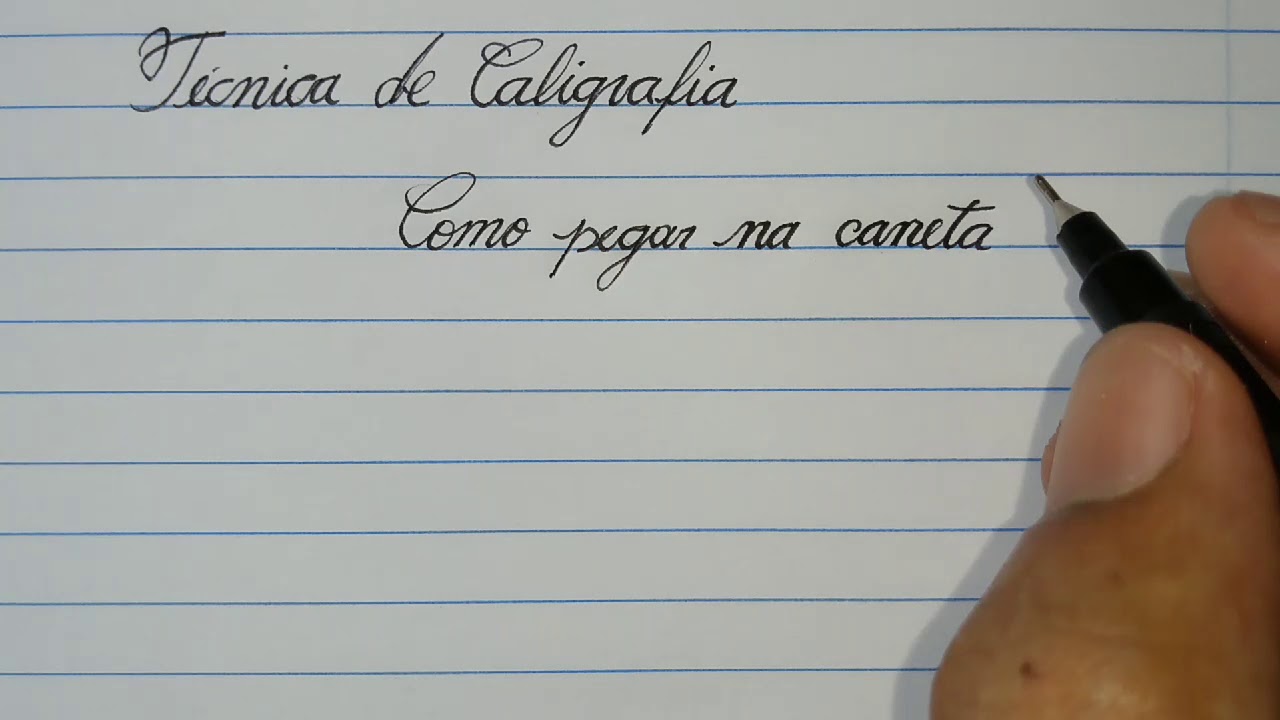 Técnica de Caligrafia
Como pegar na caneta